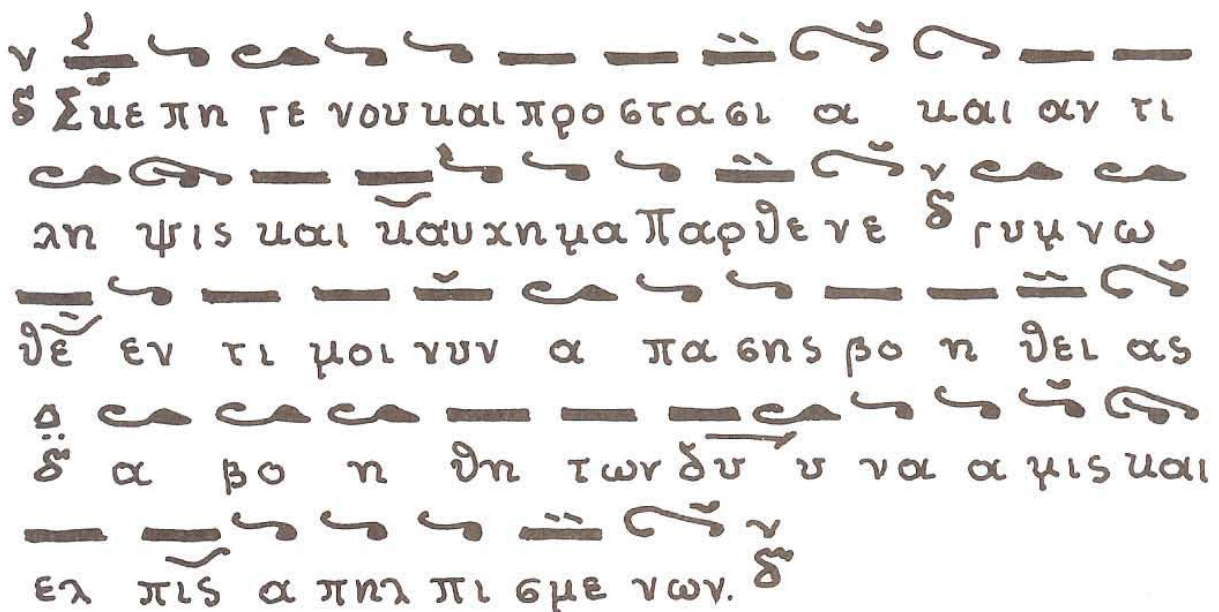 ν
δ Σκε πη γε νου και προ στα σι α και αν τι
λη ψις και καυ χη μα Παρ θε νε ν δ γυ μνω
θε εν τι μοι νυν α πα σης βο η θει ας
Δ δ α βο η θη των δυ υ να α μις και
ελ πις α πηλ πι σμε νων. ν δ